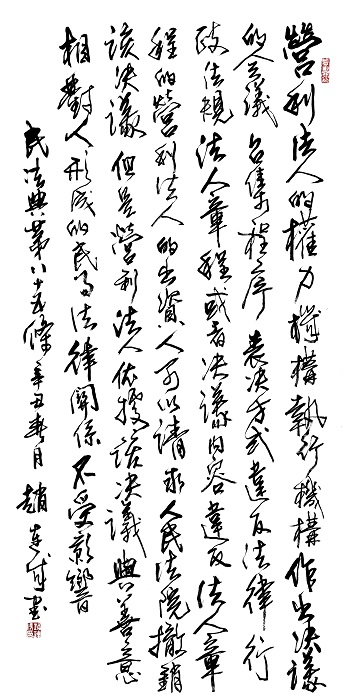 營利法人的權力機構執行機構作出决議
的会議召集程序表决方式違反法律行
政法規法人章程或者决議内容違反法人章
程的營利法人的出資人可以請求人民法院撤銷
該决議但是營利法人依據該决議與善意
相對人形成的民事法律關係不受影響
民法典第八十五條辛丑春月趙書